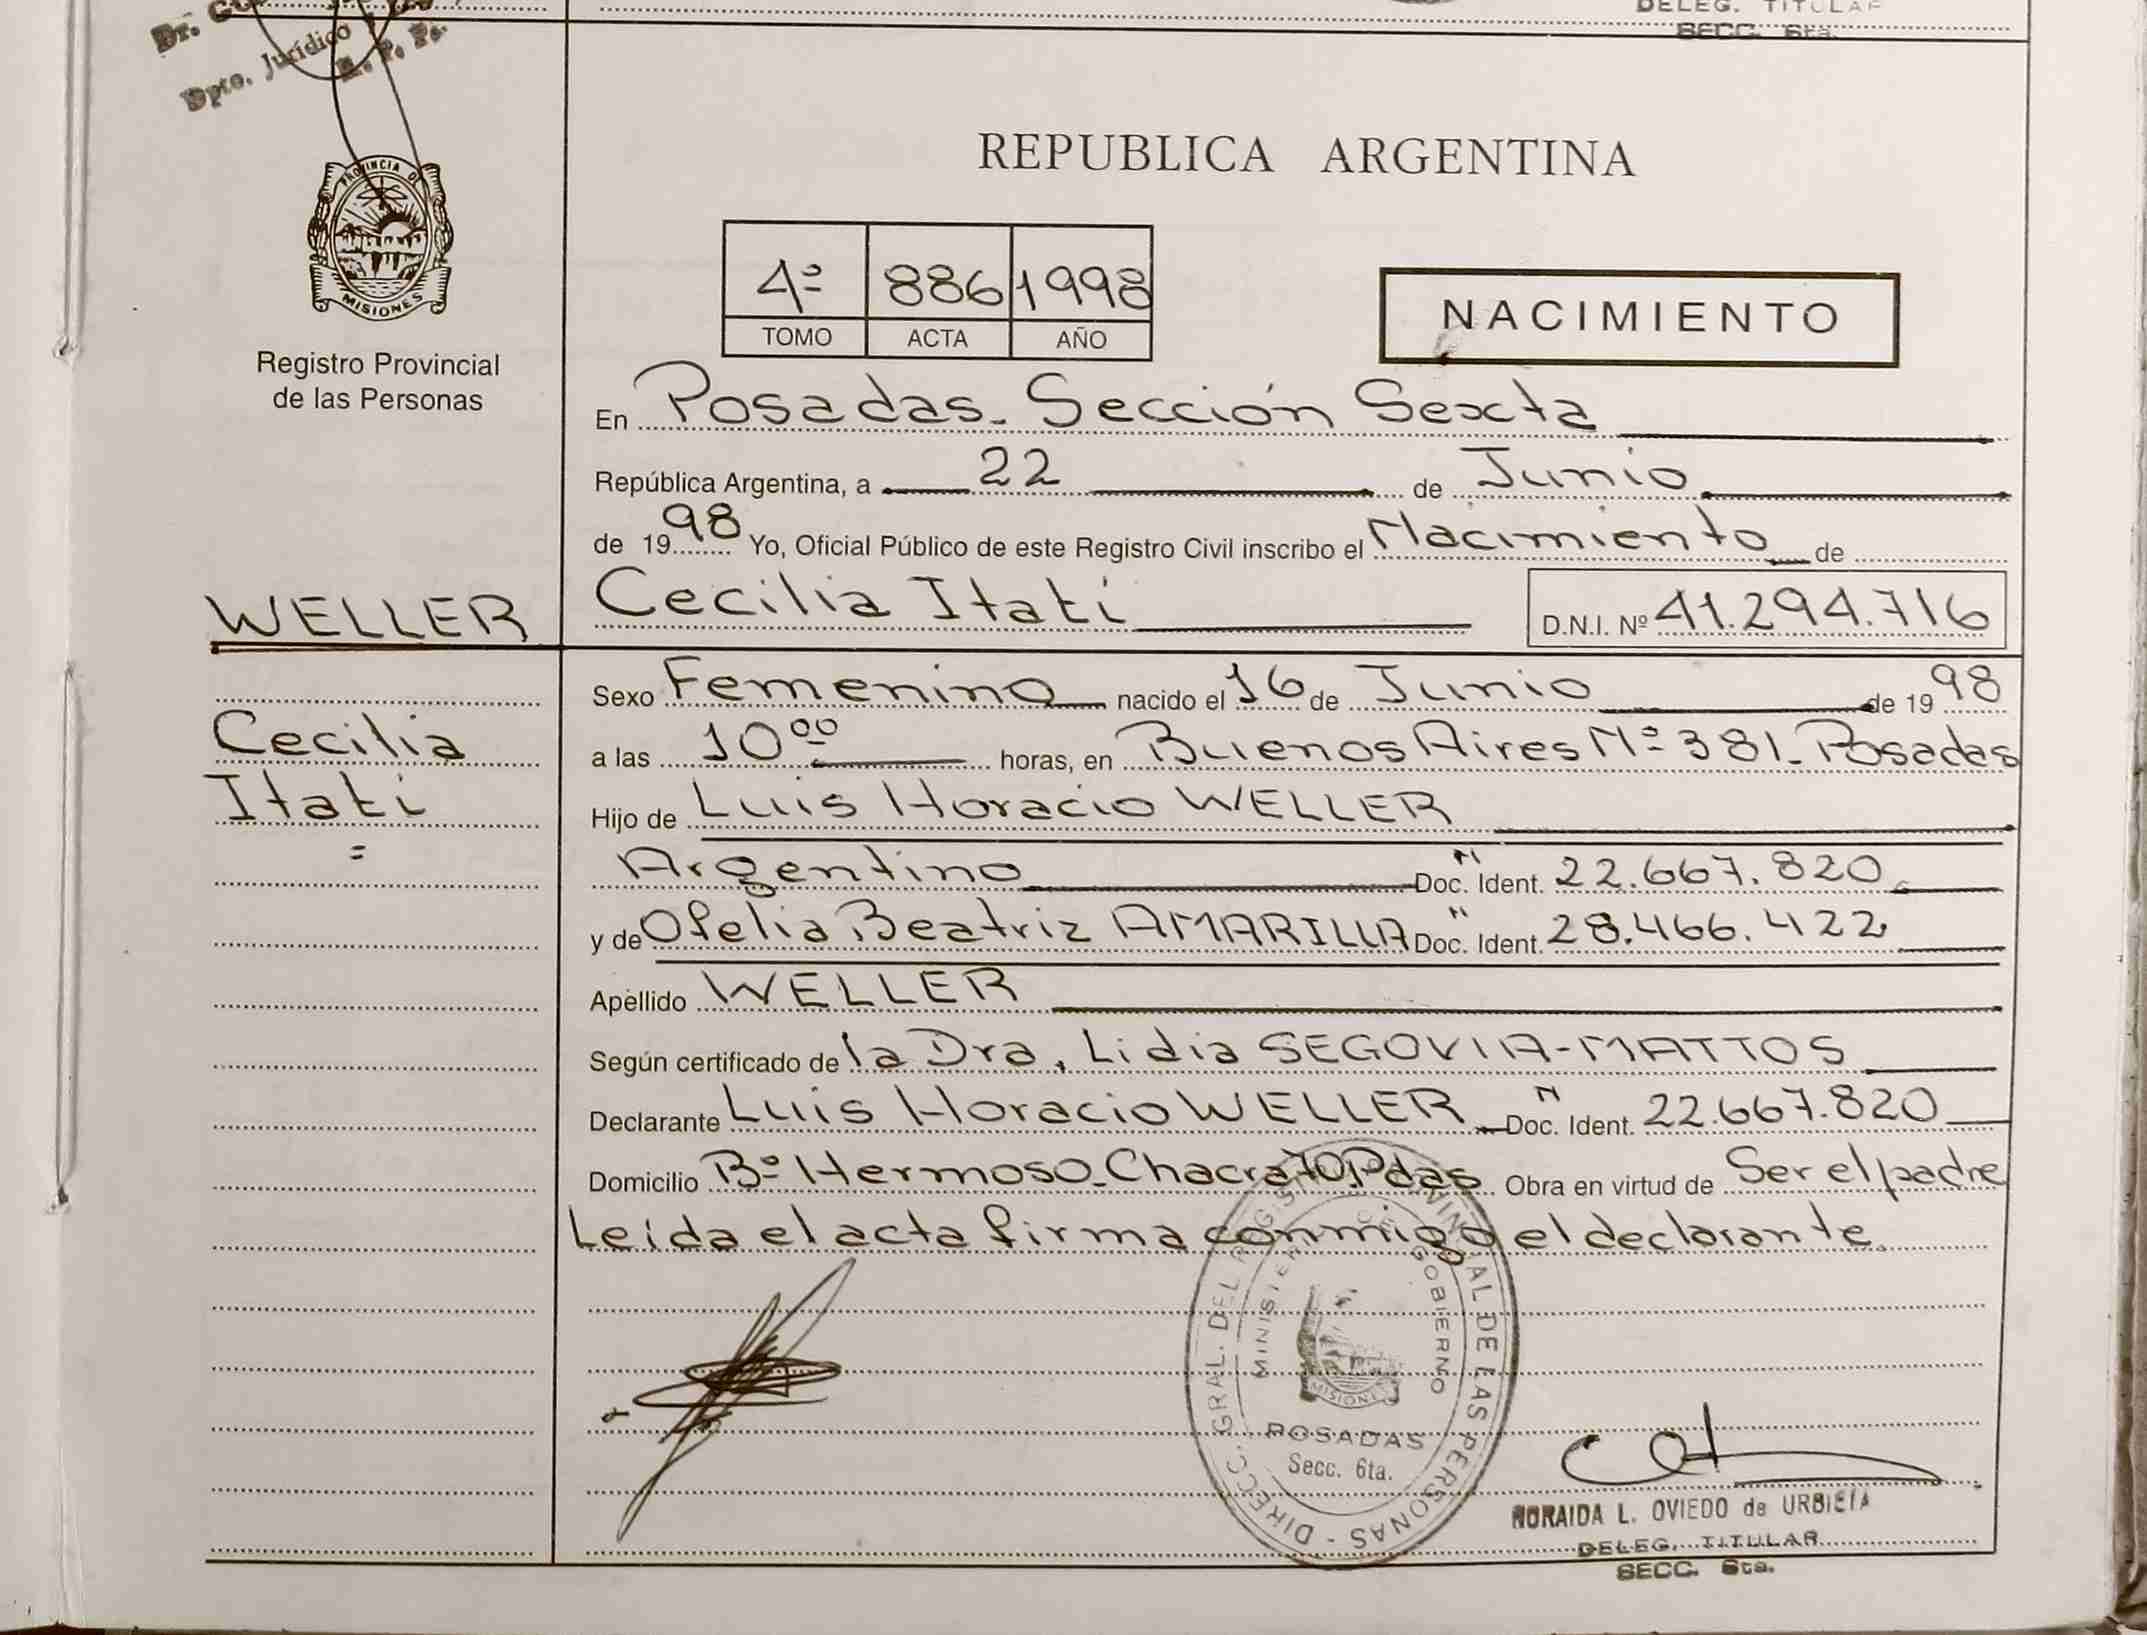 Dr.
Dpto. Jurídico
R. P. P.
DELEG. TITULAR
SECC. 6ta.
PROVINCIA DE
MISIONES
Registro Provincial
de las Personas
REPUBLICA ARGENTINA
4º 886 1998
TOMO ACTA AÑO
NACIMIENTO
En Posadas. Sección Sexta
República Argentina, a 22 de Junio
de 1998 Yo, Oficial Público de este Registro Civil inscribo el Nacimiento de
WELLER
Cecilia Itatí
D.N.I. Nº 41.294.716
Cecilia
Itatí
=
Sexo Femenino nacido el 16 de Junio de 1998
a las 10⁰⁰ horas, en Buenos Aires Nº 381. Posadas
Hijo de Luis Horacio WELLER
Argentino Doc. N Ident. 22.667.820
y de Ofelia Beatriz AMARILLA Doc. " Ident. 28.466.422
Apellido WELLER
Según certificado de la Dra. Lidia SEGOVIA-MATTOS
Declarante Luis Horacio WELLER Doc. N Ident. 22.667.820
Domicilio Bº Hermoso. Chacra 70. Pdas Obra en virtud de Ser el padre
Leída el acta firma conmigo el declarante.
DIRECC. GRAL. DEL REGISTRO PROVINCIAL DE LAS PERSONAS -
MINISTERIO DE GOBIERNO
MISIONES
POSADAS
Secc. 6ta.
NORAIDA L. OVIEDO de URBIETA
DELEG. TITULAR
SECC. 6ta.